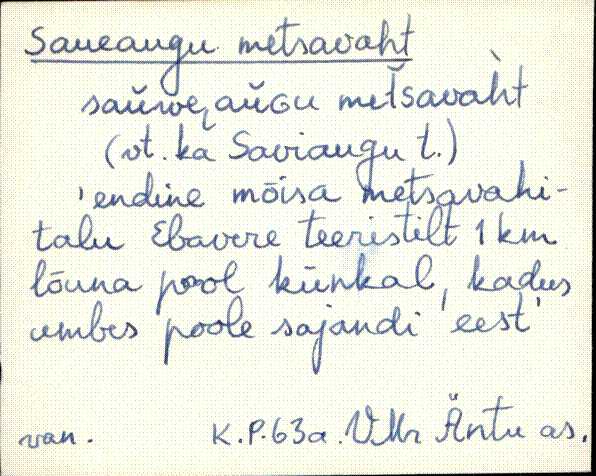 Saueaugu metsavaht
saŭwe̯aŭGu metšavàht
(vt. ka Saviaugu t.)
'endine mõisa metsavahi-
talu Ebavere teeristilt 1 km
lõuna pool künkal, kadus
umbes poole sajandi eest'
van. K.P. 63a. VMr Äntu as.